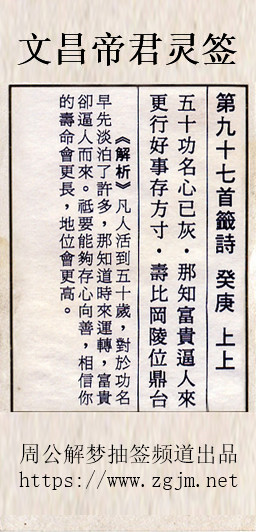 文昌帝君灵签
第九十七首籤詩 癸庚 上上
五十功名心已灰·那知富貴逼人來
更行好事存方寸·壽比岡陵位鼎台
《解析》凡人活到五十歲，對於功名
早先淡泊了許多，那知道時來運轉，富貴
卻逼人而來。祇要能夠存心向善，相信你
的壽命會更長，地位會更高。
周公解梦抽签频道出品
https://www.zgjm.net